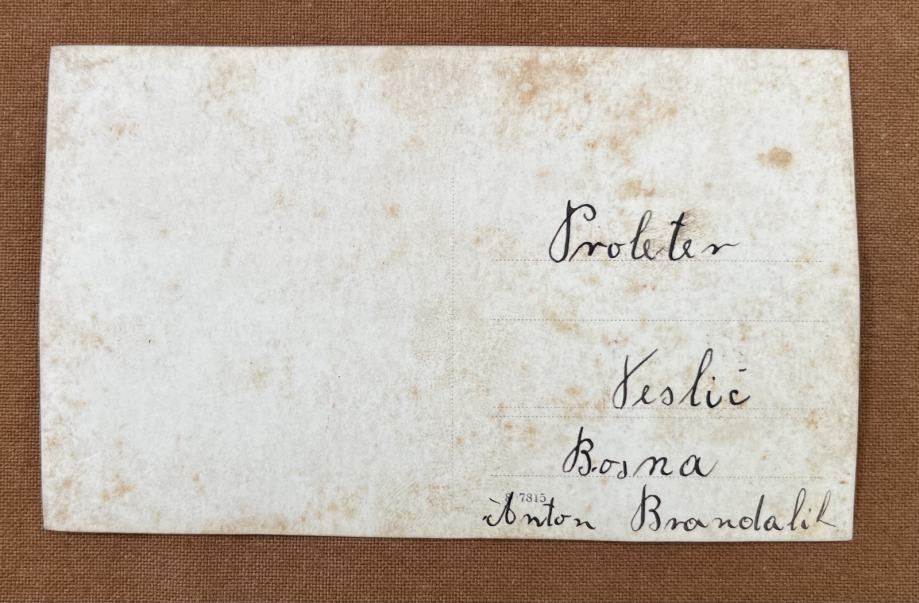 Proleter
Teslić
Bosna
7815
Anton Brandalik